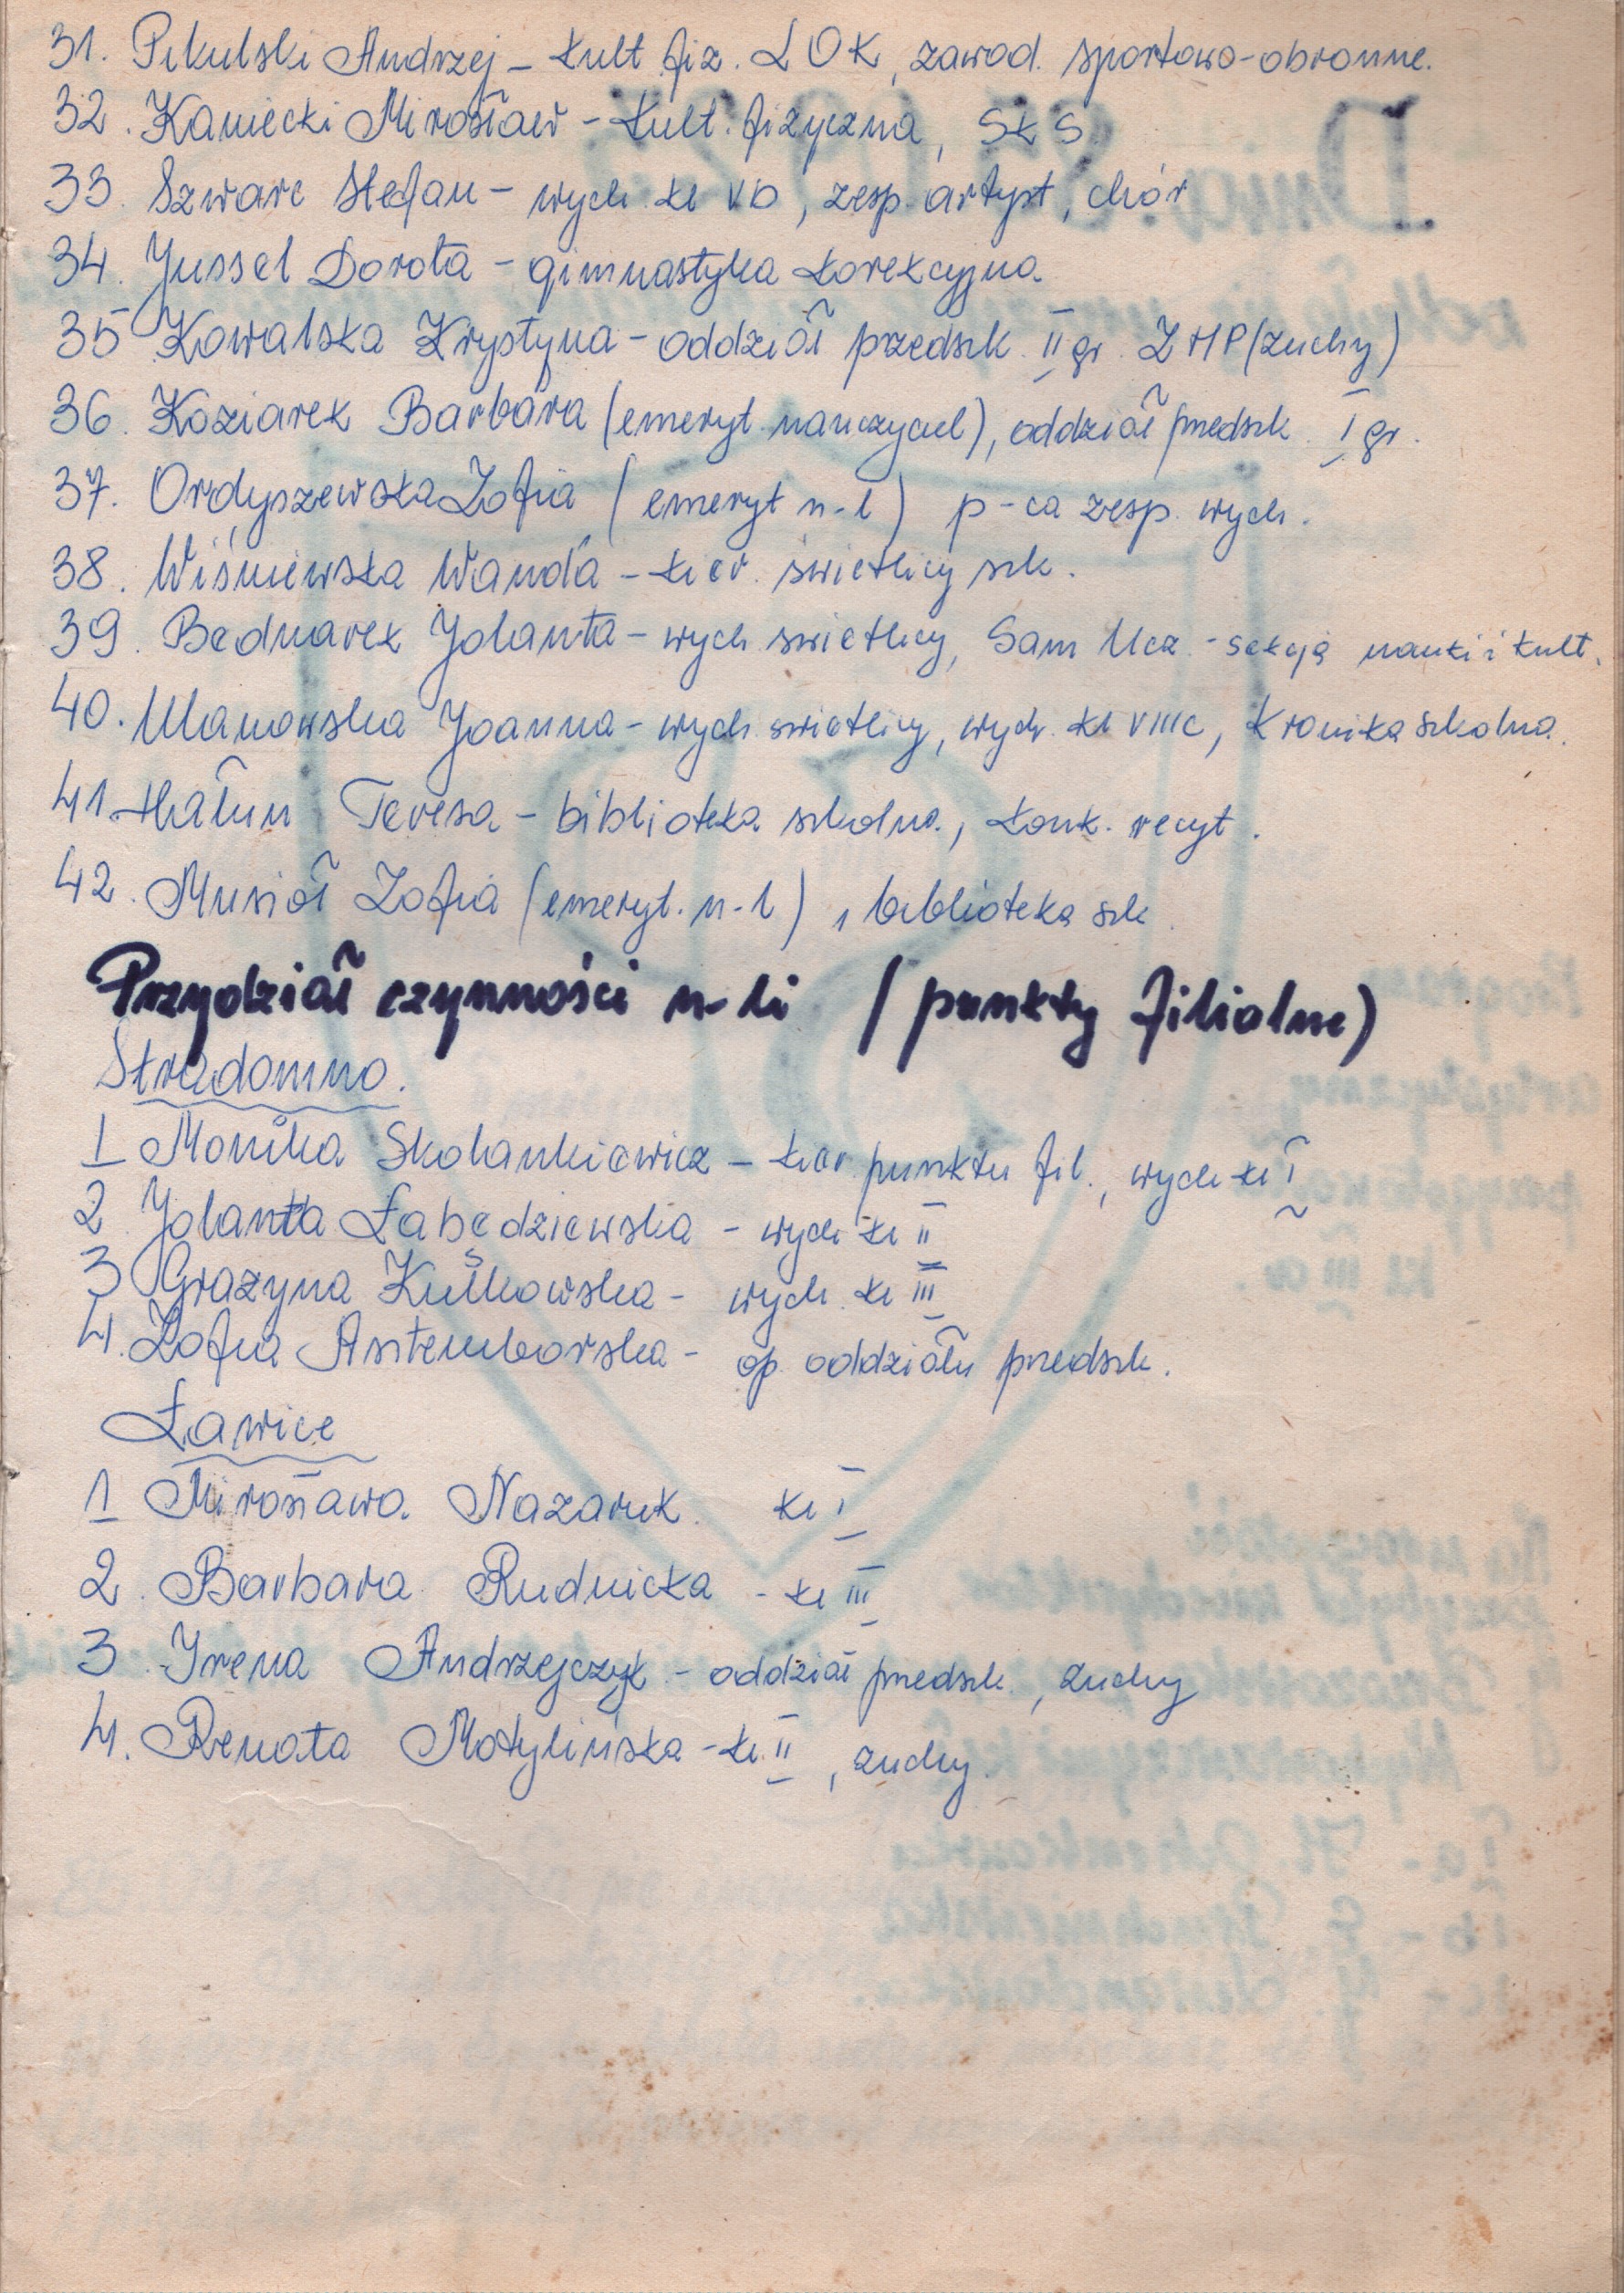 31. Pikulski Andrzej – kult fiz. LOK, zawod. sportowo-obronne.
32. Kaniecki Mirosław – kult. fizyczna, SKS
33. Szwarc Stefan – wych. kl Vb, zesp. artyst, chór
34. Jussel Dorota – gimnastyka korekcyjna.
35 Kowalska Krystyna – oddział przedszk. II gr. ZHP (zuchy)
36. Koziarek Barbara (emeryt. nauczyciel), oddział przedszk. I gr.
37. Ordyszewska Zofia (emeryt n-l) p-ca zesp. wych.
38. Wiśniewska Wanda – kier. świetlicy szk.
39. Bednarek Jolanta – wych. świetlicy, Sam Ucz. - sekcja nauki i kult.
40. Ulanowska Joanna – wych. świetlicy, wych. kl VIIIc, Kronika szkolna.
41. Hałun Teresa – biblioteka szkolna, konk. recyt.
42. Musiał Zofia (emeryt. n-l), biblioteka szk.
Przydział czynności n-li (punkty filialne)
Stradomno.
1 Monika Skolankiewicz – kier punktu fil., wych kl I
2 Jolanta Łabędziewska – wych kl II
3 Grażyna Kułkowska – wych. kl III
4. Zofia Asztemborska – op. oddziału przedszk.
Ławice
1 Mirosława Nazaruk. kl I
2. Barbara Rudnicka – kl III
3. Irena Andrzejczyk – oddział przedszk., zuchy
4. Renata Motylińska – kl. II, zuchy.